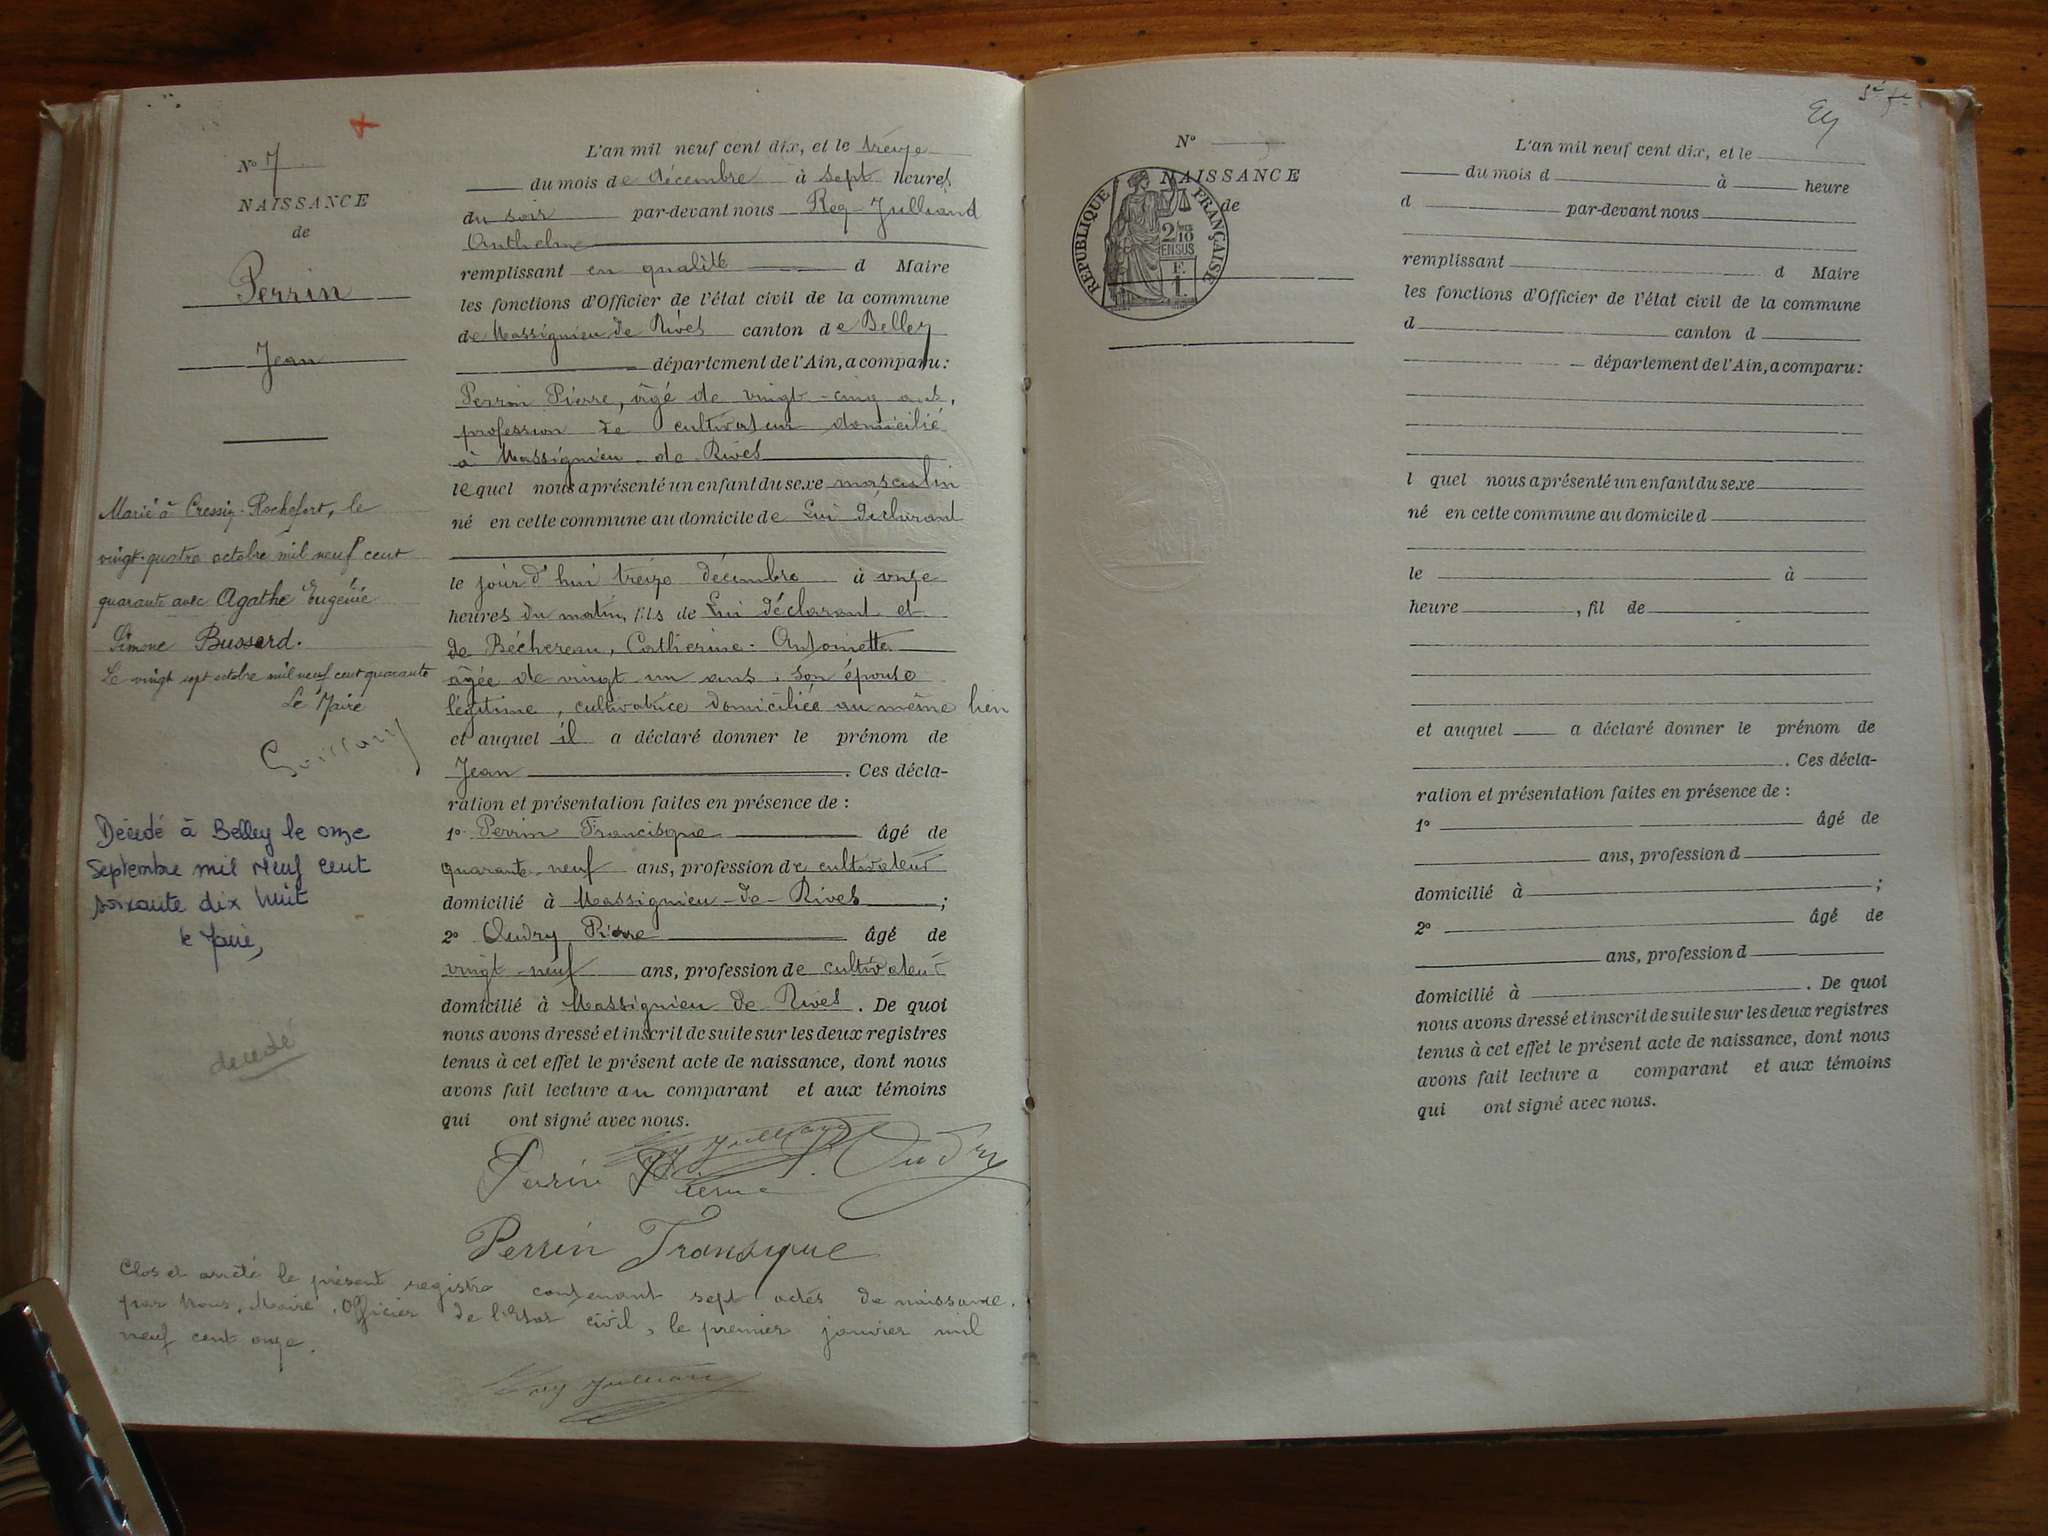 N° 7
NAISSANCE
de
Perrin
Jean
Marié à Cressin-Rochefort, le
vingt-quatre octobre mil neuf cent
quarante avec Agathe Eugénie
Simone Bussard.
Le vingt sept octobre mil neuf cent quarante
Le Maire
Décédé à Belley le onze
Septembre mil neuf cent
soixante dix huit
le Maire,
décédé
L'an mil neuf cent dix, et le treize
du mois de décembre à sept heures
du soir par-devant nous Rey-Julliand
Anthelme
remplissant en qualité d Maire
les fonctions d'Officier de l'état civil de la commune
de Massignieu de Rives canton de Belley
département de l'Ain, a comparu :
Perrin Pierre, âgé de vingt-cinq ans,
profession de cultivateur domicilié
à Massignieu-de Rives
lequel nous a présenté un enfant du sexe masculin
né en cette commune au domicile de Lui déclarant
le jour d'hui treize décembre à onze
heures du matin, fils de Lui déclarant et
de Béchereau, Catherine-Antoinette
âgée de vingt un ans, son épouse
légitime, cultivatrice domiciliée au même lieu
et auquel il a déclaré donner le prénom de
Jean. Ces décla-
ration et présentation faites en présence de :
1° Perrin Francisque âgé de
quarante-neuf ans, profession de cultivateur
domicilié à Massignieu-de-Rives ;
2° Oudry Pierre âgé de
vingt-neuf ans, profession de cultivateur
domicilié à Massignieu de Rives. De quoi
nous avons dressé et inscrit de suite sur les deux registres
tenus à cet effet le présent acte de naissance, dont nous
avons fait lecture au comparant et aux témoins
qui ont signé avec nous.
Rey Julliand
Perrin Pierre P. Oudry
Perrin Fransique
Clos et arrêté le présent registre contenant sept actes de naissance,
par Nous, Maire, Officier de l'Etat civil, le premier janvier mil
neuf cent onze.
Rey Julliand
N°
NAISSANCE
de
REPUBLIQUE FRANÇAISE
2/10
EN SUS
L'an mil neuf cent dix, et le
du mois d à heure
d par-devant nous
remplissant d Maire
les fonctions d'Officier de l'état civil de la commune
d canton d
département de l'Ain, a comparu :
l quel nous a présenté un enfant du sexe
né en cette commune au domicile d
le à
heure , fil de
et auquel a déclaré donner le prénom de
. Ces décla-
ration et présentation faites en présence de :
1° âgé de
ans, profession d
domicilié à ;
2° âgé de
ans, profession d
domicilié à . De quoi
nous avons dressé et inscrit de suite sur les deux registres
tenus à cet effet le présent acte de naissance, dont nous
avons fait lecture a comparant et aux témoins
qui ont signé avec nous.